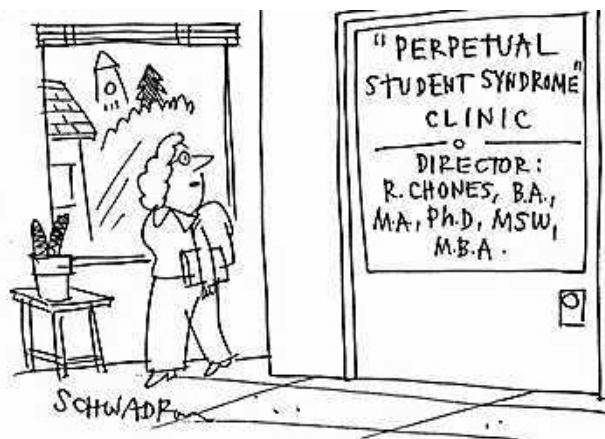 "PERPETUAL
STUDENT SYNDROME"
CLINIC
DIRECTOR:
R. CHONES, B.A.,
M.A., Ph.D, MSW,
M.B.A.
SCHWADRON